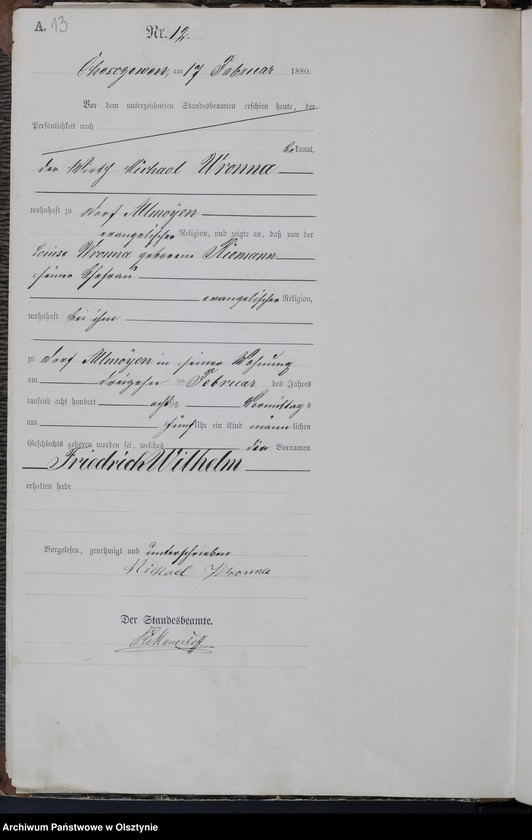 A. 13
Nr. 12.
am 17 Februar 1880.
Vor dem unterzeichneten Standesbeamten erschien heute, der
Persönlichkeit nach
bekannt,
der Wirth Michael Wronna
wohnhaft zu Dorf Allmoyen
evangelischer Religion, und zeigte an, daß von der
Louise Wronna geborene Riemann
seiner Ehefrau
evangelischer Religion,
wohnhaft bei ihm
zu Dorf Allmoyen in seiner Wohnung
am dreizehn ten Februar des Jahres
tausend acht hundert achtzig Vormittag s
um fünf Uhr ein Kind männ lichen
Geschlechts geboren worden sei, welches den Vornamen
Friedrich Wilhelm
erhalten habe
Vorgelesen, genehmigt und unterschrieben
Michael Wronna
Der Standesbeamte.
Archiwum Państwowe w Olsztynie